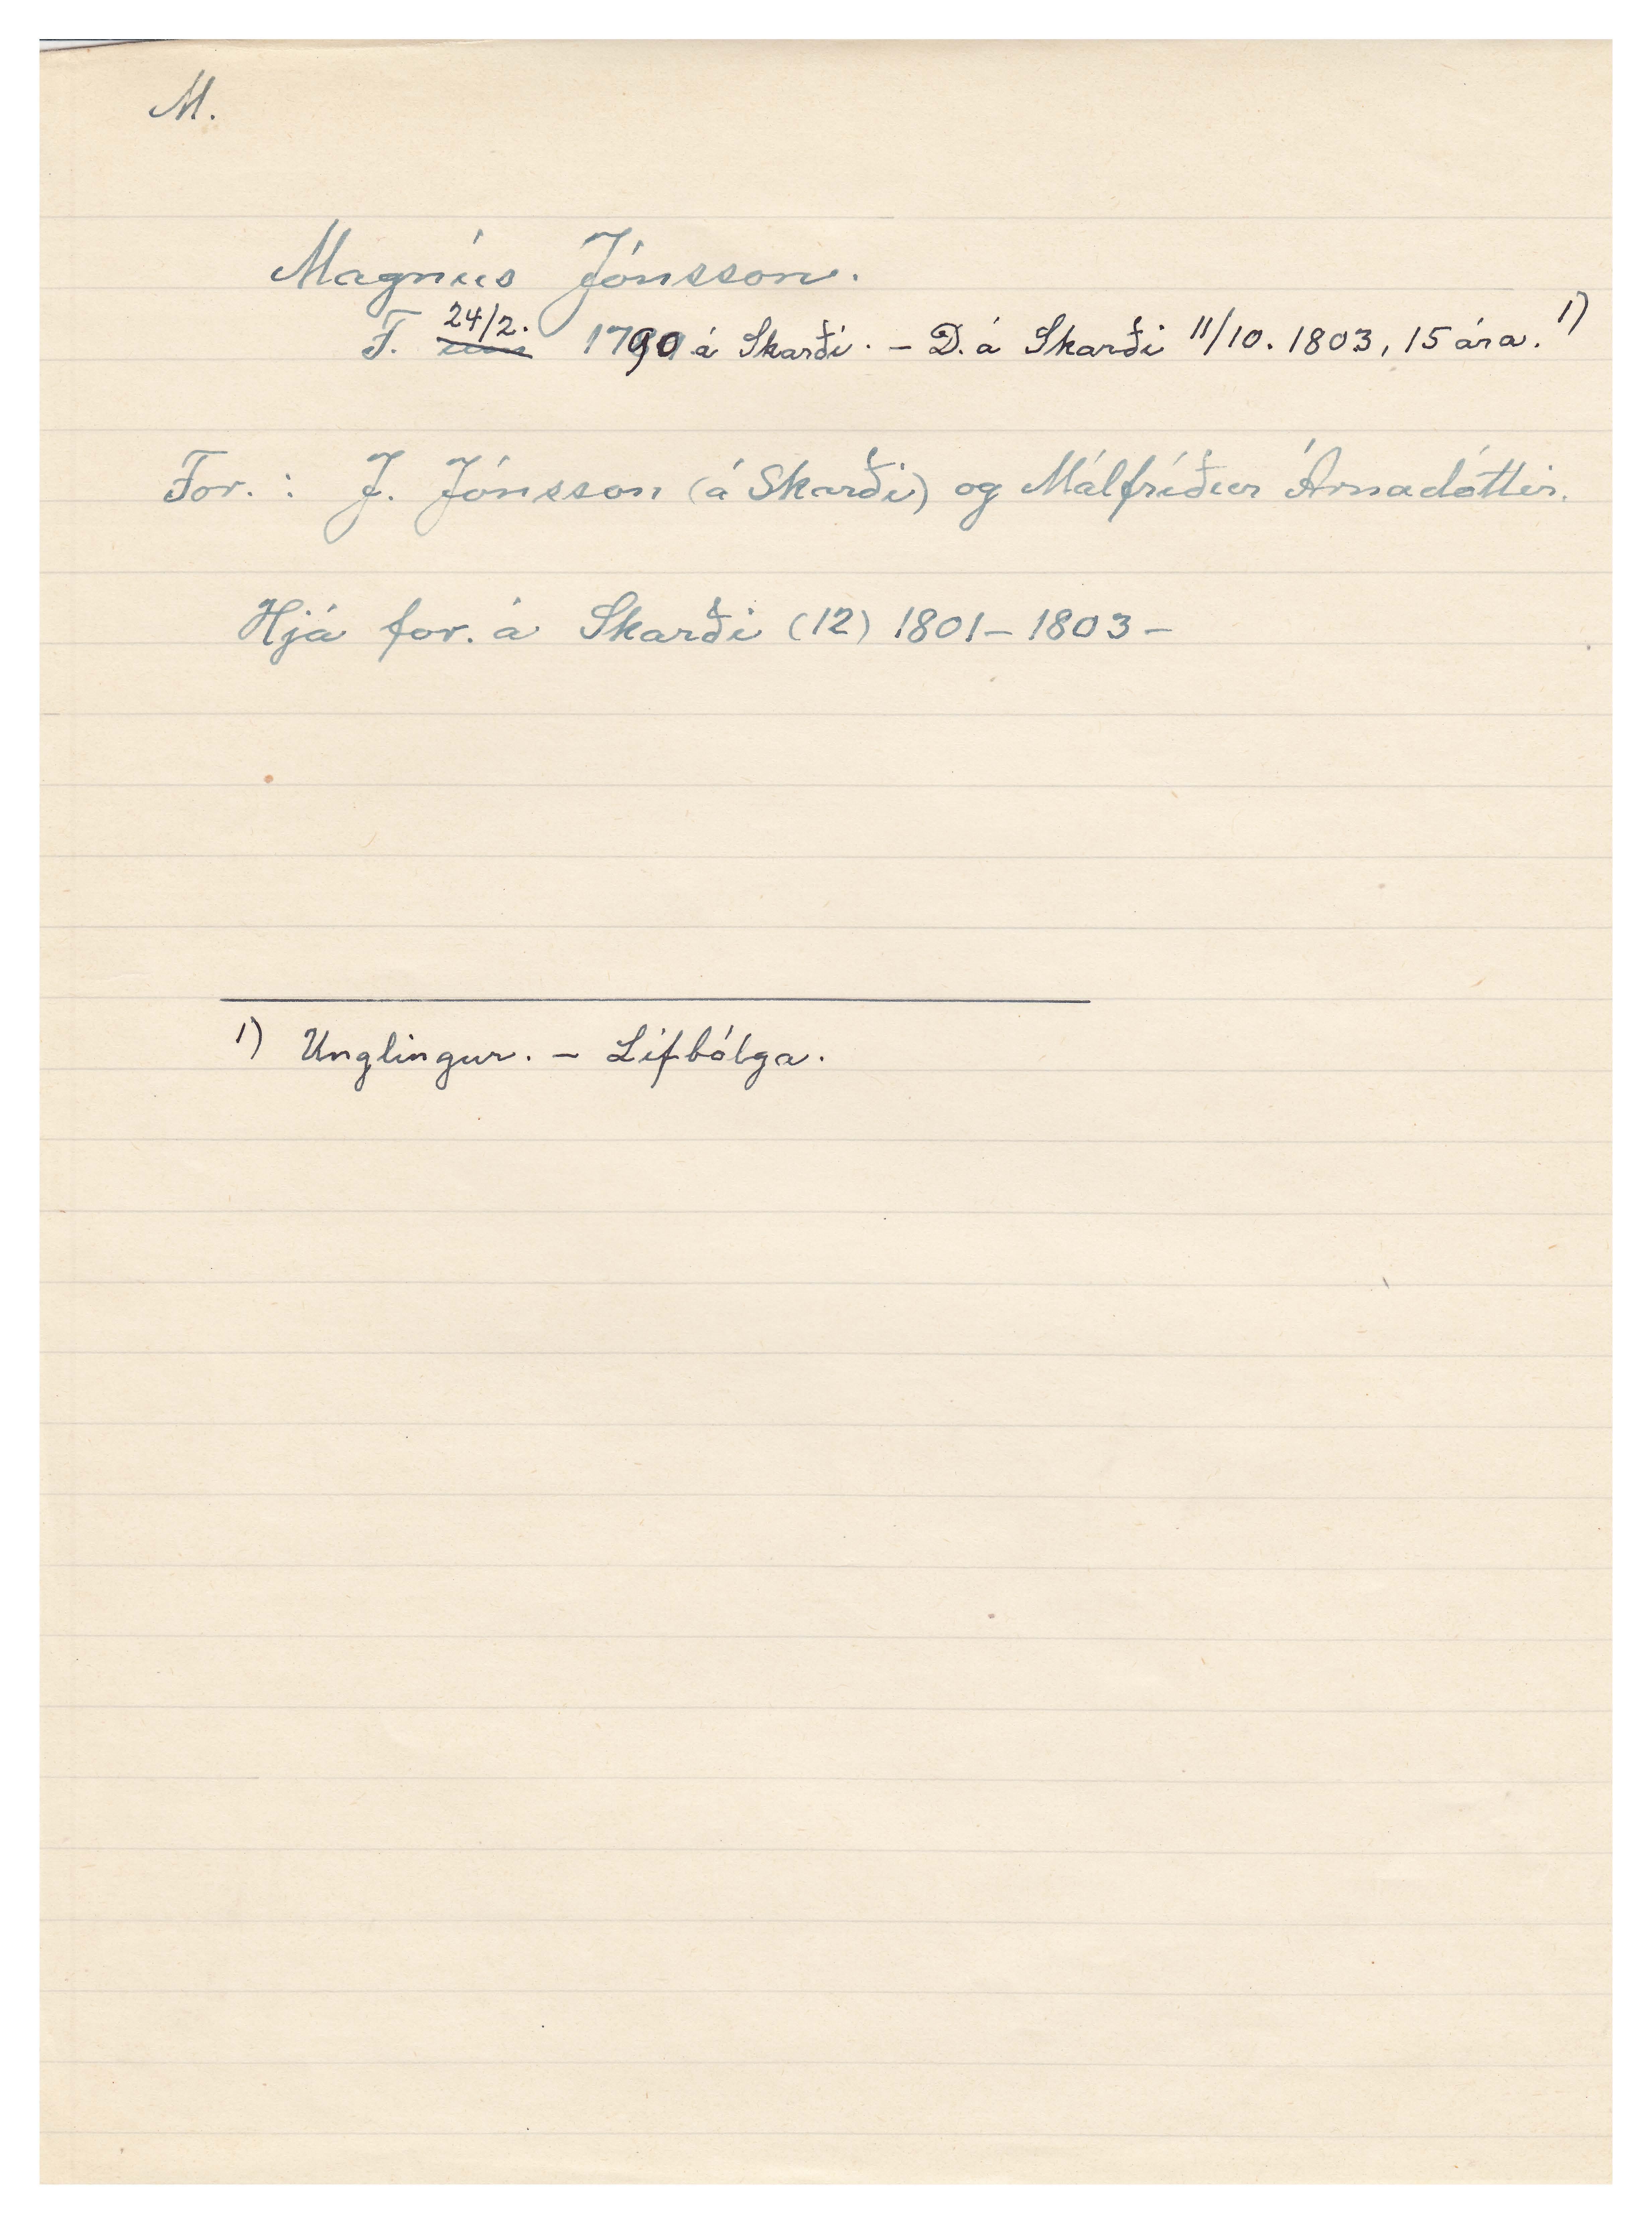 M.
Magnús Jónsson.
F. 24/2. 1790 á Skarði. – D. á Skarði 11/10. 1803, 15 ára. 1)
For. : J. Jónsson (á Skarði) og Málfríður Árnadóttir.
Hjá for. á Skarði (12) 1801 – 1803 –
1) Unglingur. – Lífbólga.